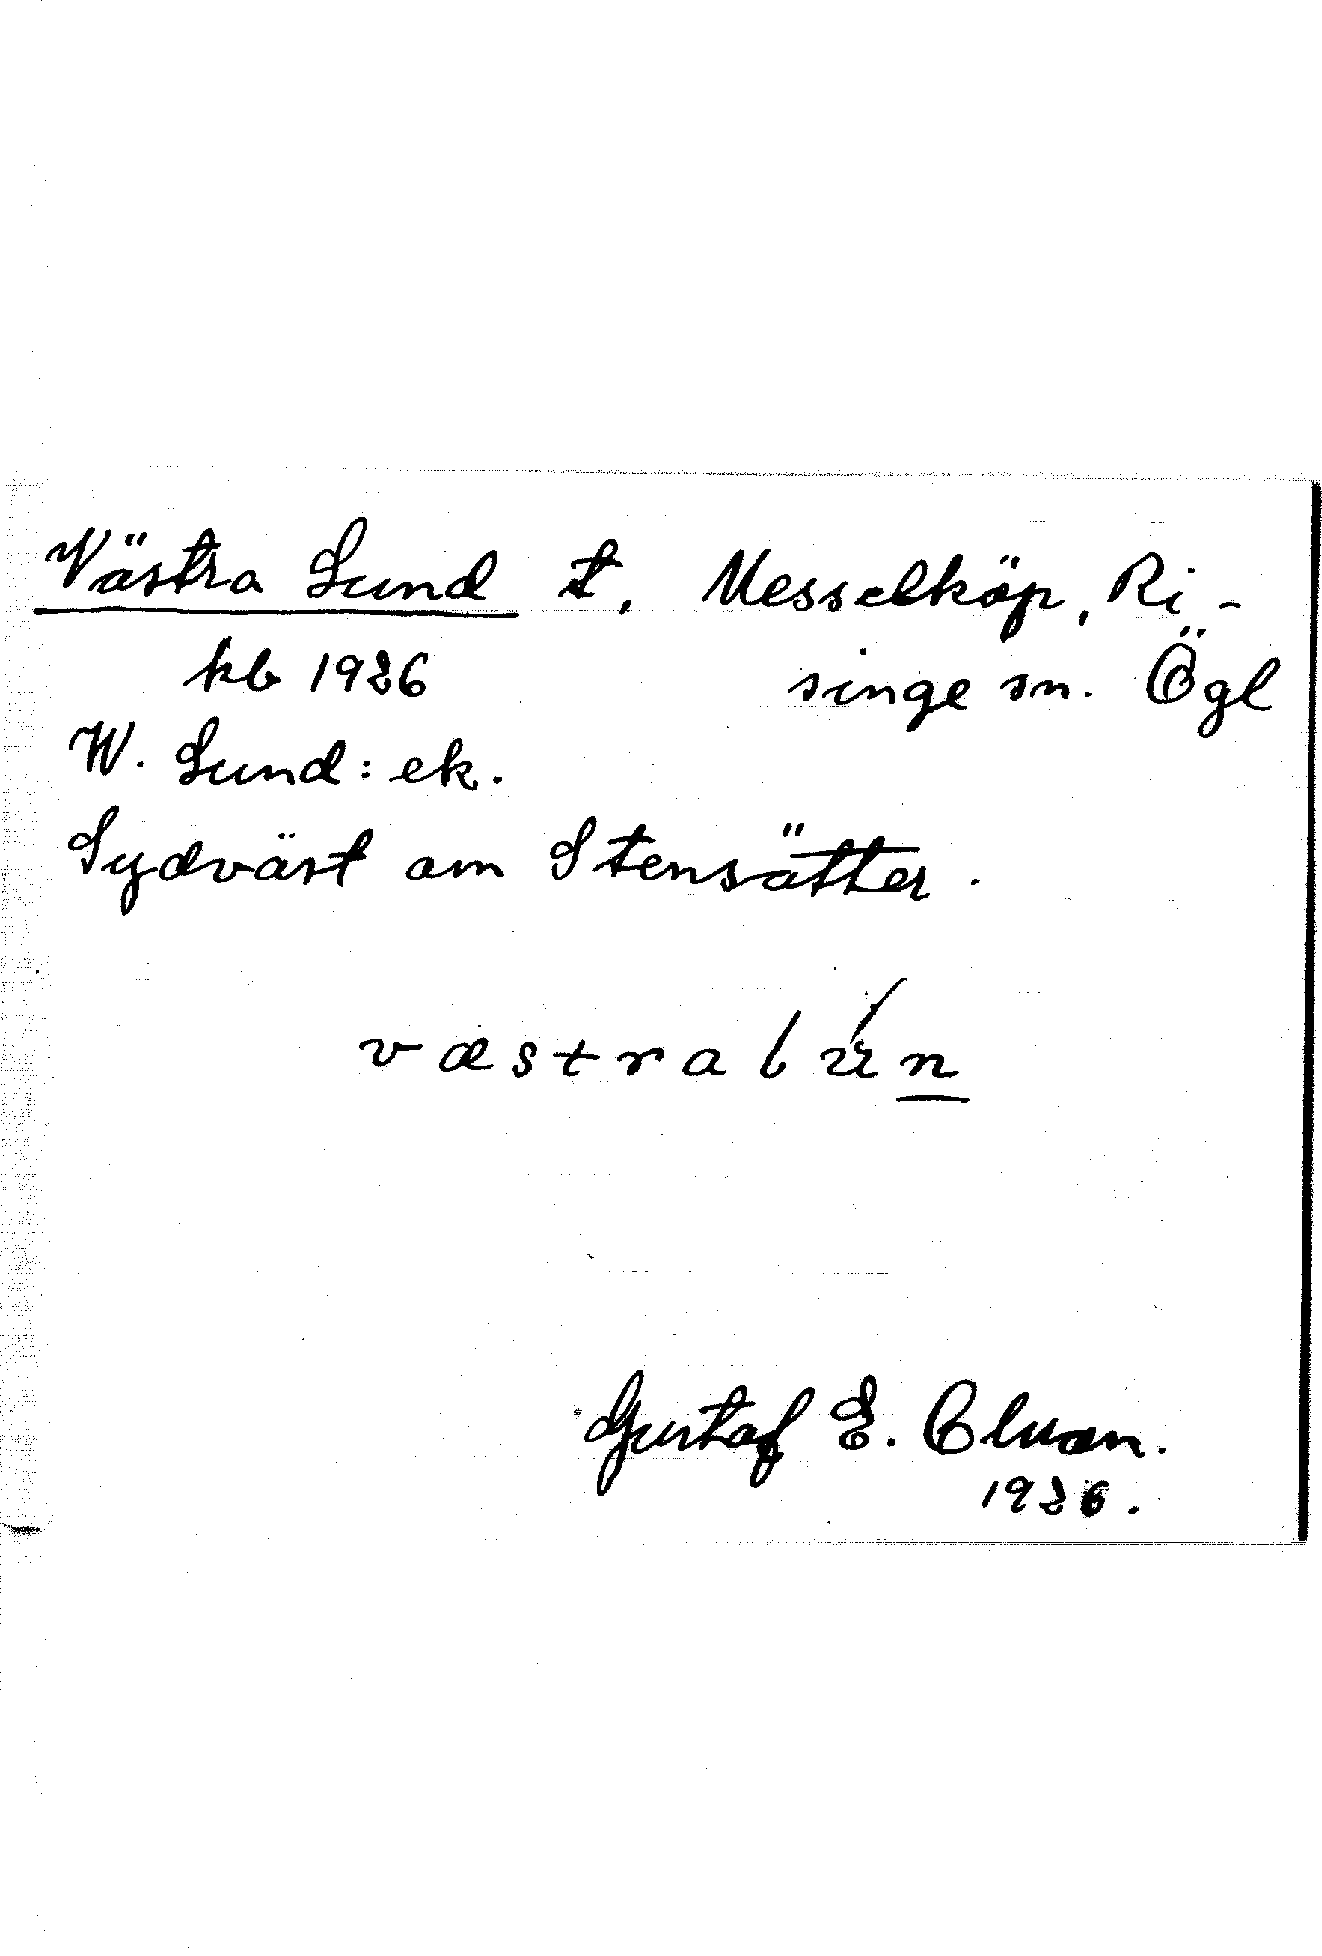 Västra Lund t, Messelköp, Ri-
kb 1936 singe sn. Ögl
W. Lund: ek.
Sydväst om Stensätter.
Gustaf E.
1936.